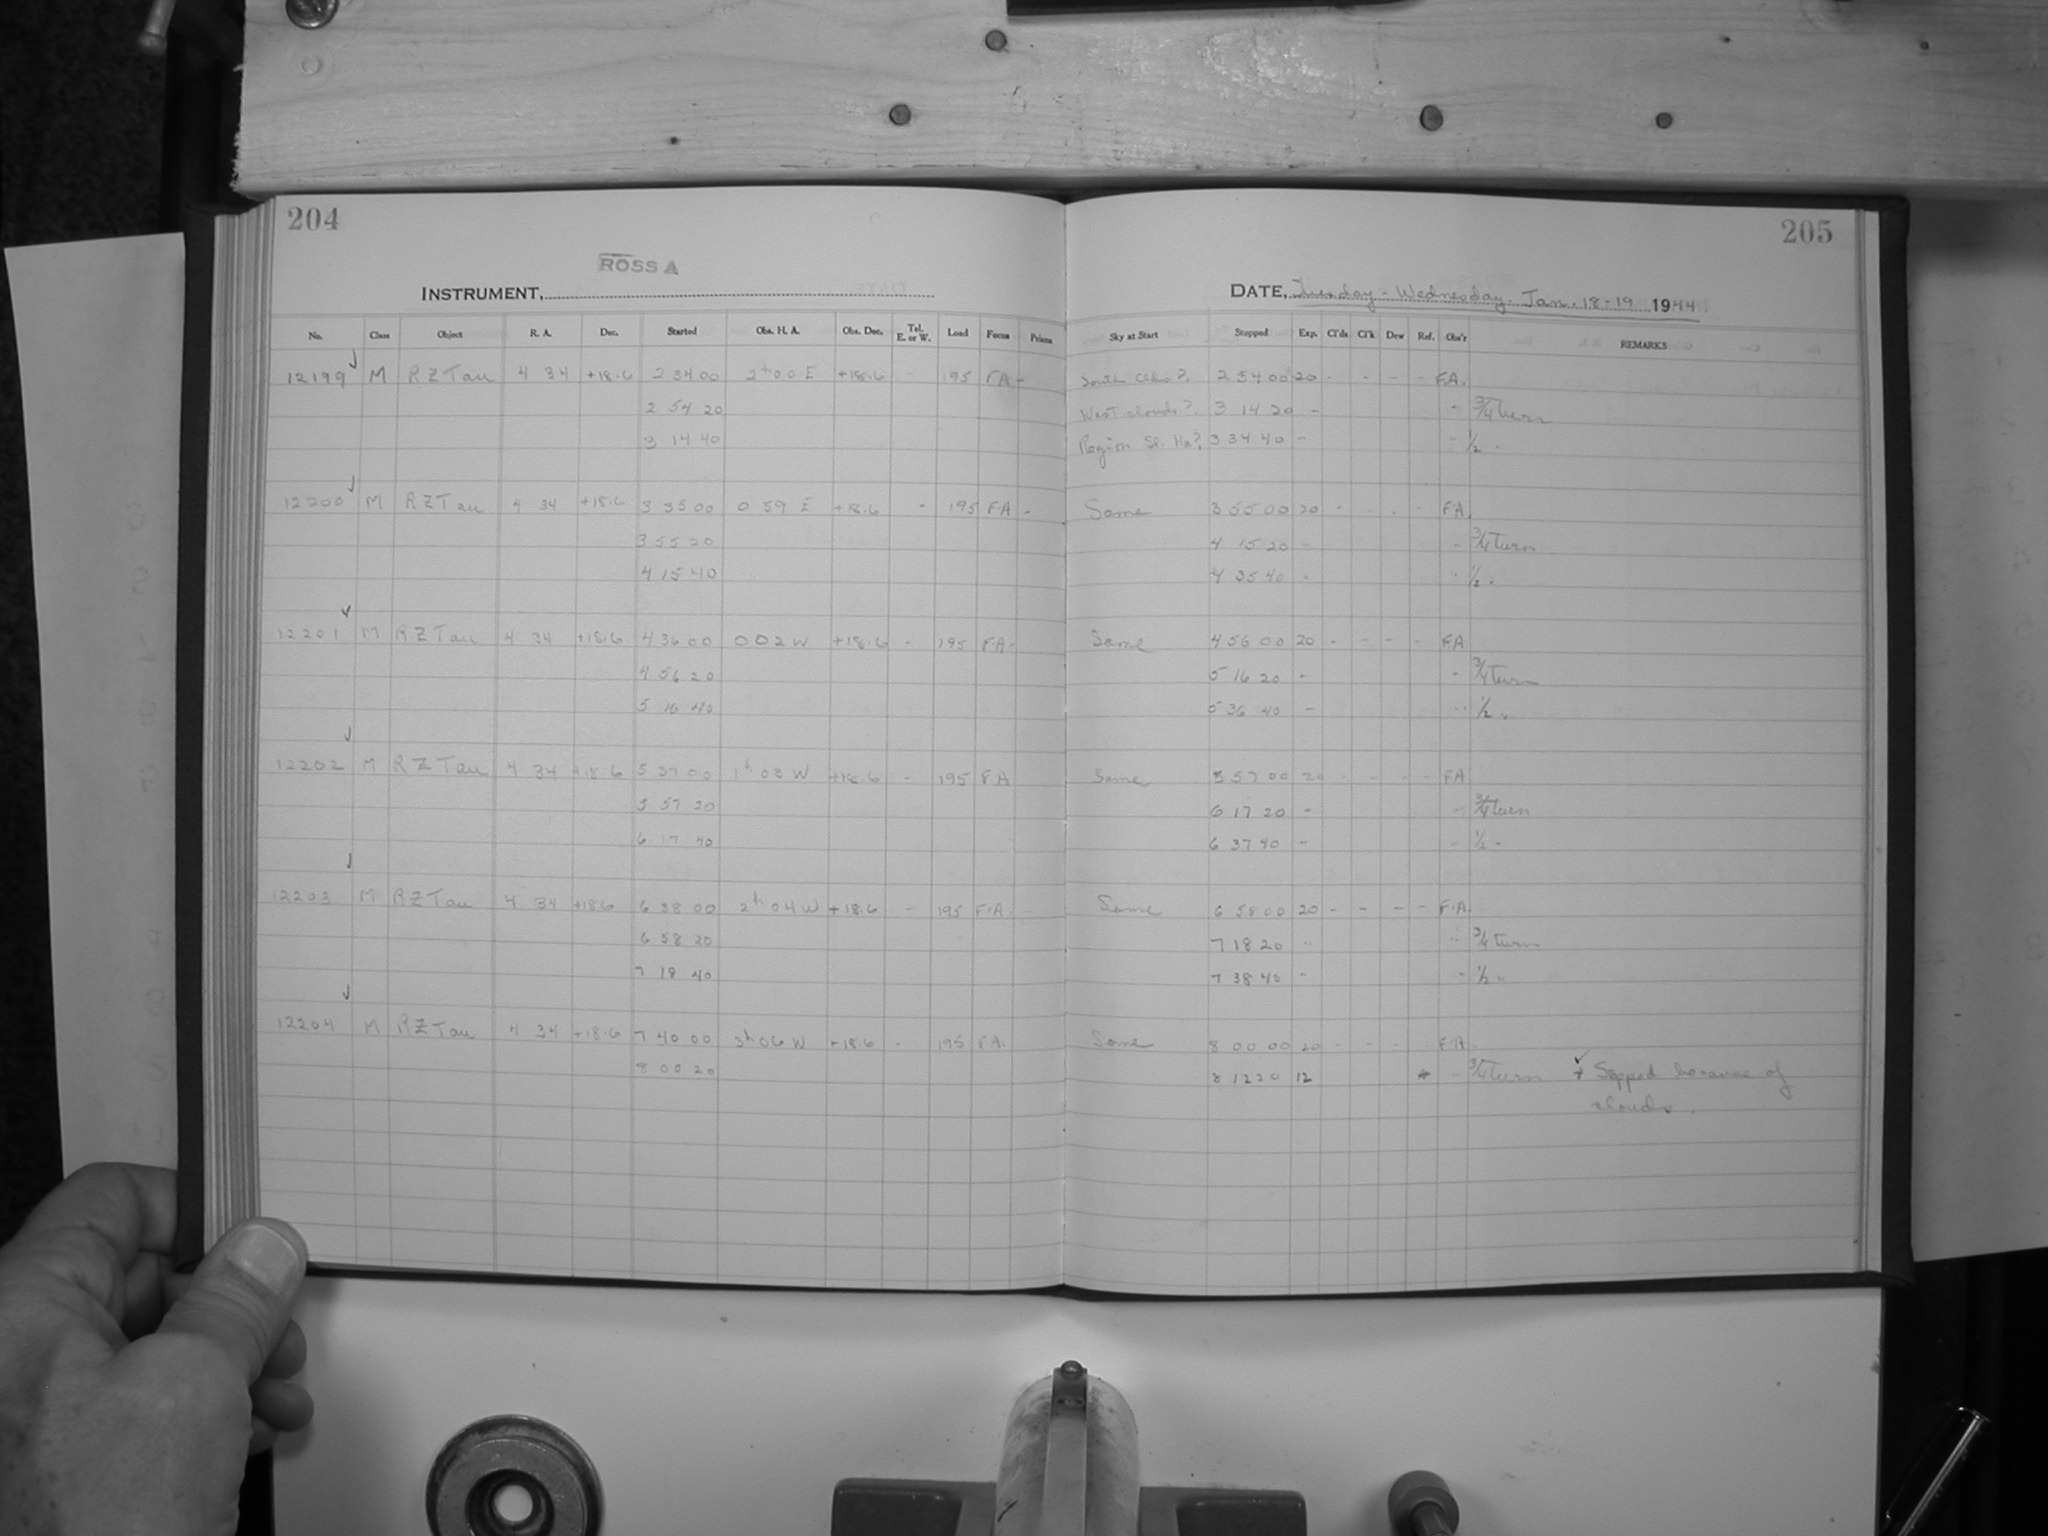 204
205
ROSS A
INSTRUMENT,
DATE, Tuesday - Wednesday, Jan. 18-19 1944
No. Class Object R. A. Dec. Started Obs. H. A. Obs. Dec. Tel. E. or W. Load Focus Prisms Sky at Start Stopped Exp. Cl'ds Cl'k Dew Ref. Obs'r REMARKS
12199 M RZ Tau 4 34 +18.6 2 34 00 2h 00 E +18.6 - 195 FA - South Clds?. 2 54 00 20 - - - - F.A.
2 54 20 West clouds? 3 14 20 - - 3/4 turn
3 14 40 Region Sl. Ha? 3 34 40 - - 1/2 "
12200 M RZ Tau 4 34 +18.6 3 35 00 0 59 E +18.6 - 195 F.A - Same 3 55 00 20 - - - - F.A.
3 55 20 4 15 20 - - 3/4 turn
4 15 40 4 35 40 - - 1/2 "
12201 M RZ Tau 4 34 +18.6 4 36 00 0 02 W +18.6 - 195 F.A - Same 4 56 00 20 - - - - F.A
4 56 20 5 16 20 - - 3/4 turn
5 16 40 5 36 40 - - 1/2 "
12202 M RZ Tau 4 34 +18.6 5 37 00 1h 03 W +18.6 - 195 F.A Same 5 57 00 20 - - - - F.A
5 57 20 6 17 20 - - 3/4 turn
6 17 40 6 37 40 - - 1/2 "
12203 M RZ Tau 4 34 +18.6 6 38 00 2h 04 W +18.6 - 195 F.A. Same 6 58 00 20 - - - - F.A.
6 58 20 7 18 20 - - 3/4 turn
7 18 40 7 38 40 - - 1/2 "
12204 M RZ Tau 4 34 +18.6 7 40 00 3h 06 W +18.6 - 195 F.A. Same 8 00 00 20 - - - F.A.
8 00 20 8 12 20 12 * - 3/4 turn * Stopped because of
clouds.